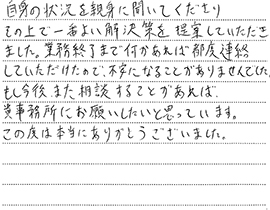 自身の状況を親身に聞いてくださり
その上で一番よい解決策を提案していただき
ました。業務終了まで何かあれば都度連絡
していただけたので、不安になることがありませんでした。
もし今後また相談することがあれば、
貴事務所にお願いしたいと思っています。
この度は本当にありがとうございました。